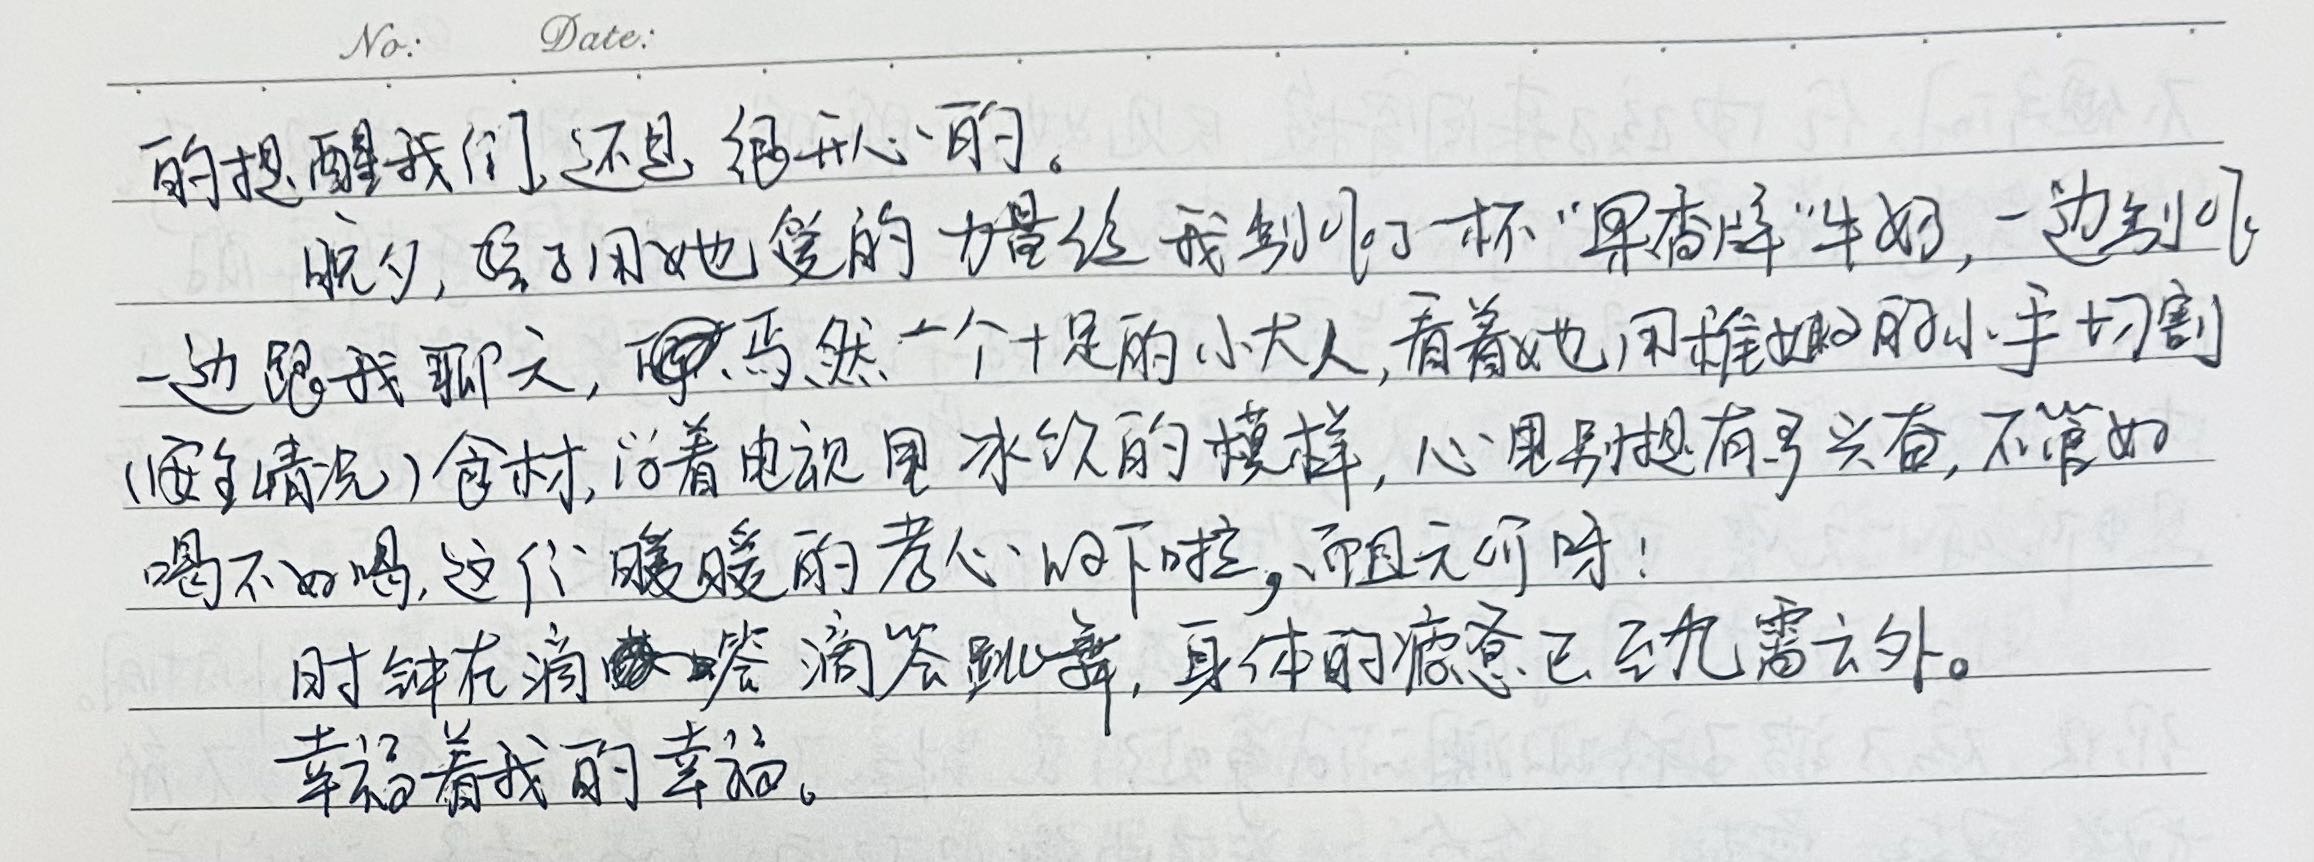 No: Date:
的提醒我们,还是绝开心的。
晚夕,孩子用她爱的力量给我制作了一杯“果香牌”牛奶,一边制作
一边跟我聊天,焉然一个十足的小大人,看着她用稚嫩的小手切割
(安全情况)食材,学着电视里冰饮的模样,心里别提有多兴奋,不管好
喝不好喝,这份暖暖的孝心收下啦,而且无价呀!
时钟在滴答滴答跳舞,身体的疲惫已至九霄云外。
幸福着我的幸福。